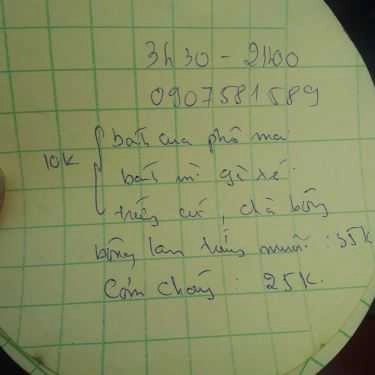 3h30 - 21h00
0907581589
10K { bánh cua phô mai
bánh mì gà xé
trứng cút, chà bông
bông lan trứng muối : 35K
Cơm cháy : 25K.